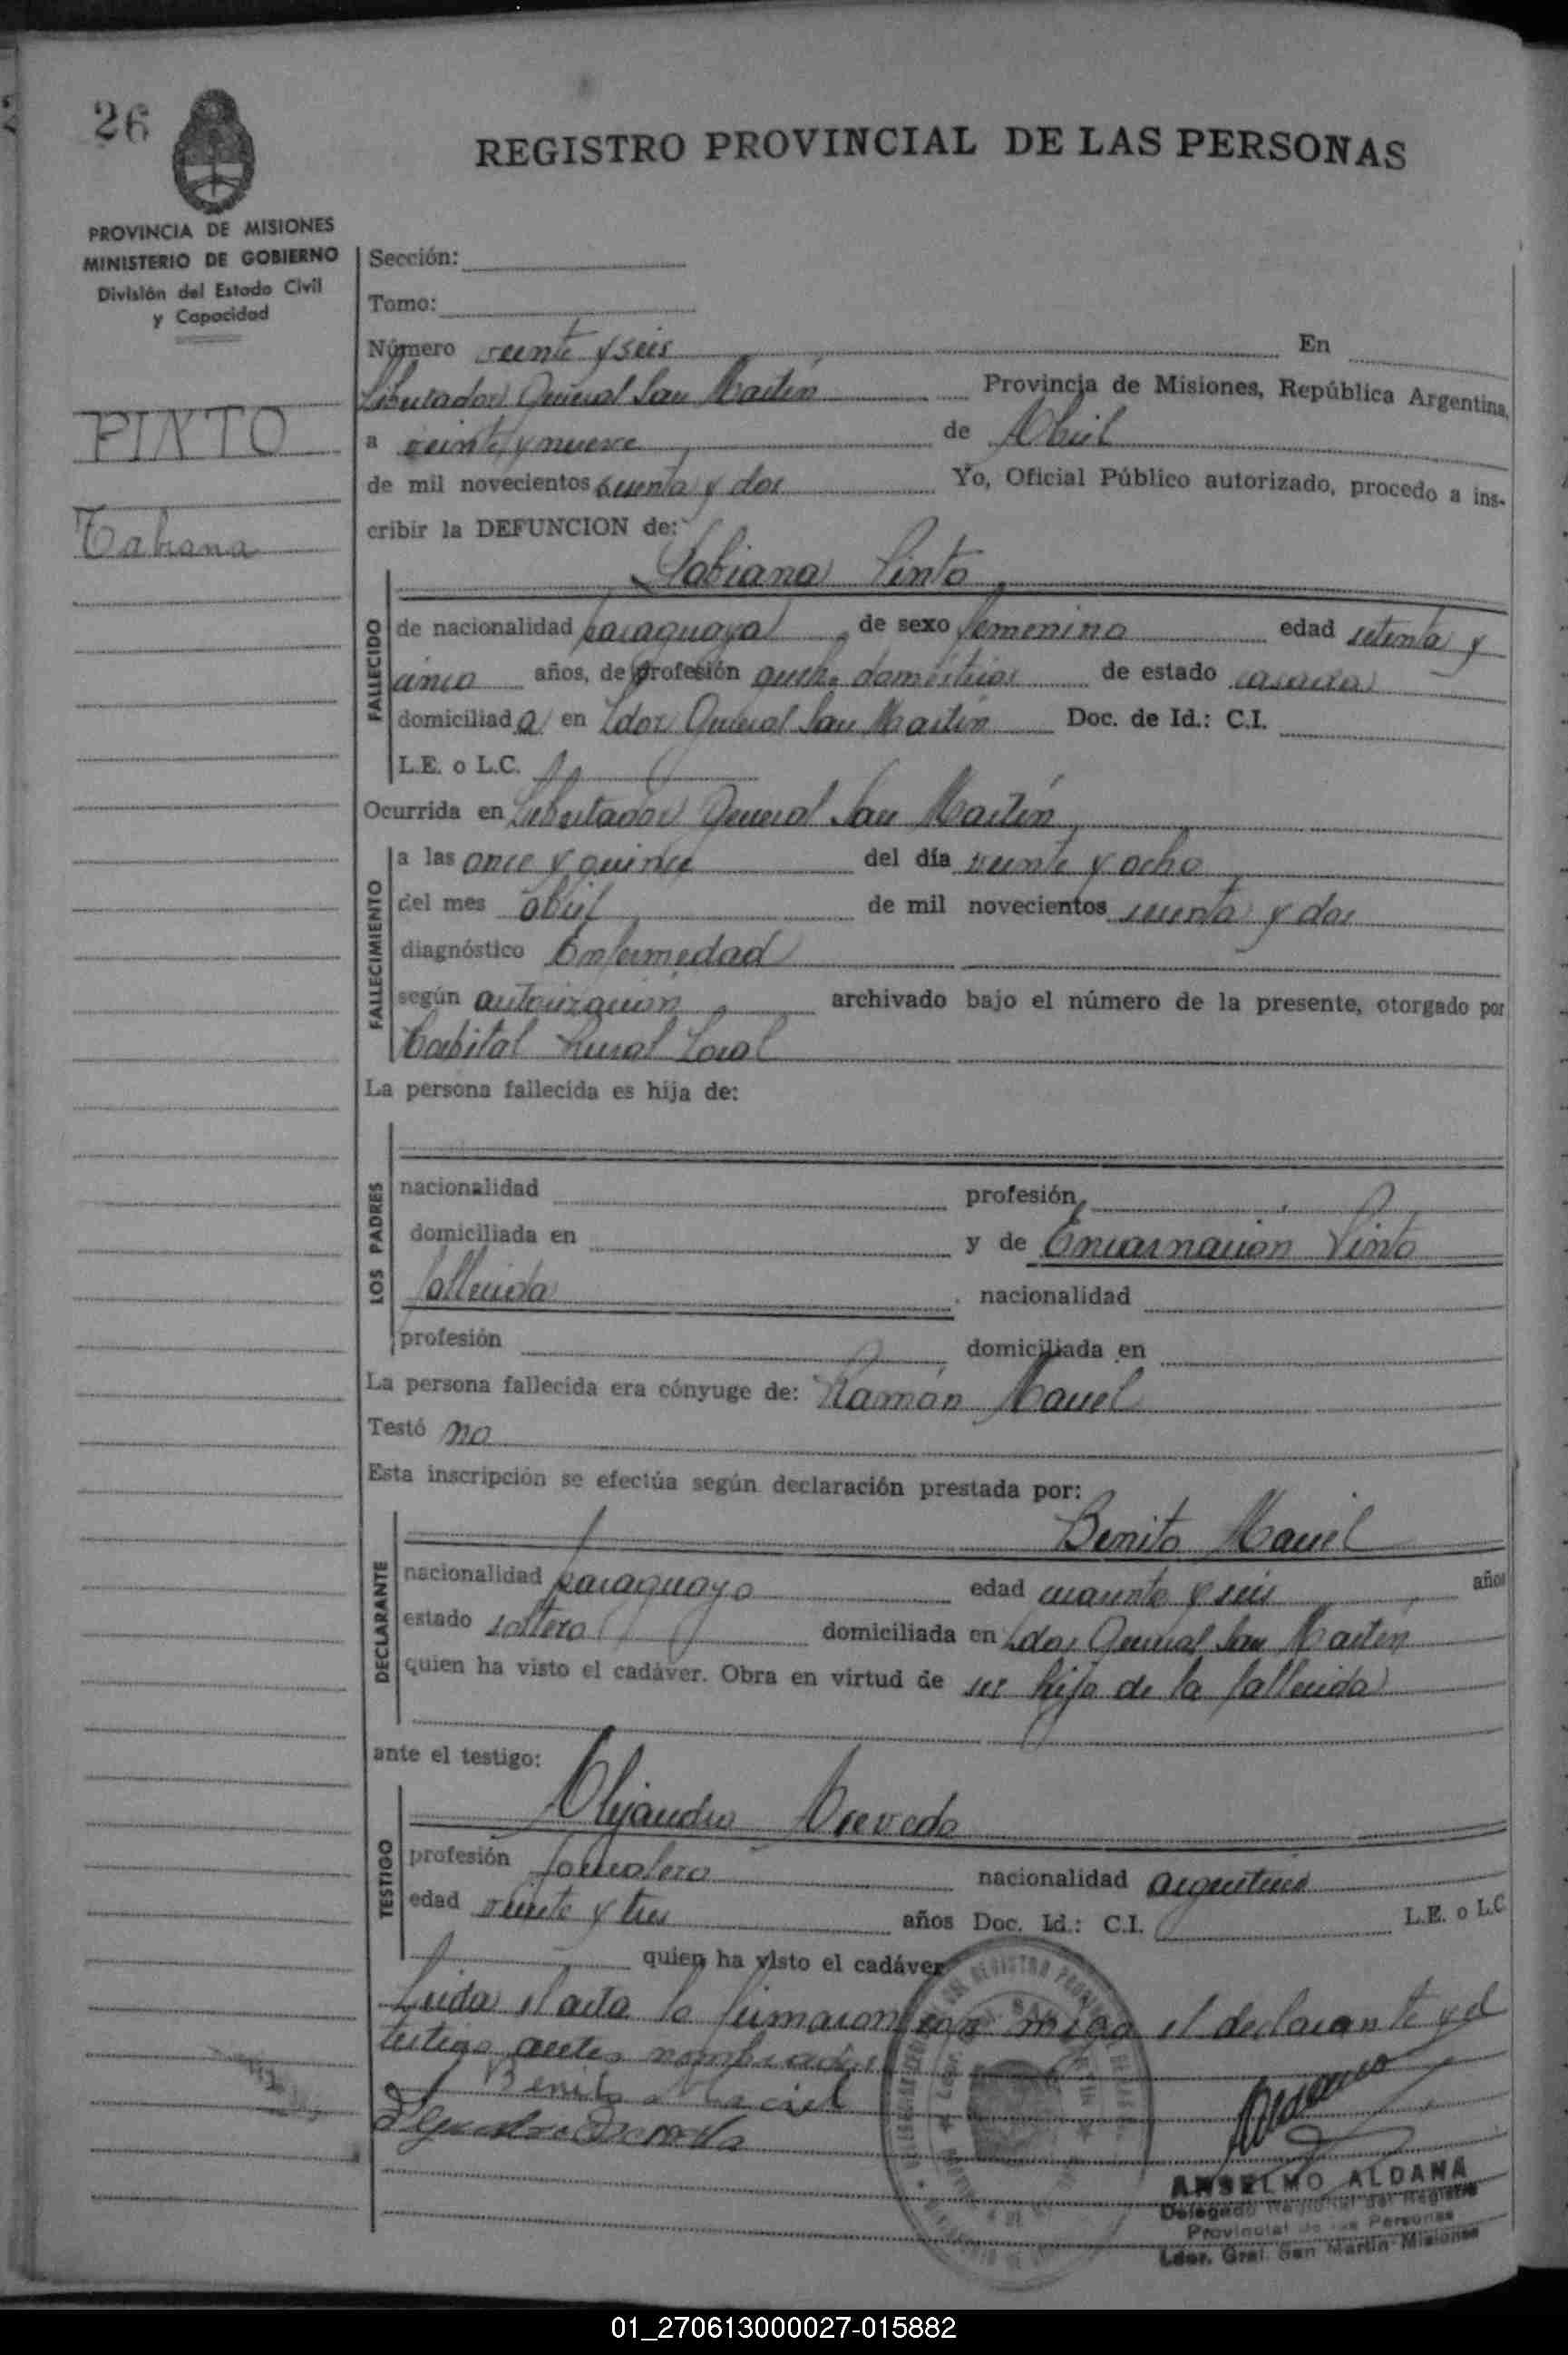 26
REGISTRO PROVINCIAL DE LAS PERSONAS
PROVINCIA DE MISIONES
MINISTERIO DE GOBIERNO
División del Estado Civil
y Capacidad
PINTO
Sección:
Tomo:
Número veinte y seis En
Libertador General San Martín Provincia de Misiones, República Argentina,
a veinte y nueve de Abril
de mil novecientos sesenta y dos Yo, Oficial Público autorizado, procedo a ins-
cribir la DEFUNCION de:
Pinto
FALLECIDO
de nacionalidad paraguaya de sexo femenino edad setenta y
cinco años, de profesión domésticos de estado casada
domiciliada en Ldor General San Martín Doc. de Id.: C.I.
L.E. o L.C.
Ocurrida en Libertador General San Martín
FALLECIMIENTO
a las once y quince del día veinte y ocho
del mes abril de mil novecientos sesenta y dos
diagnóstico Enfermedad
según autorización archivado bajo el número de la presente, otorgado por
Rural Local
La persona fallecida es hija de:
LOS PADRES
nacionalidad profesión
domiciliada en y de Encarnación Pinto
fallecida nacionalidad
profesión domiciliada en
La persona fallecida era cónyuge de: Ramón Maciel
Testó no
Esta inscripción se efectúa según declaración prestada por:
Benito Maciel
DECLARANTE
nacionalidad paraguayo edad cuarenta y seis años
estado soltero domiciliada en Ldor General San Martín
quien ha visto el cadáver. Obra en virtud de ser hijo de la fallecida
ante el testigo:
Alejandro Acevedo
TESTIGO
profesión Jornalero nacionalidad argentina
edad veinte y tres años Doc. Id.: C.I. L.E. o L.C.
quien ha visto el cadáver
Leida el acta la firmaron con migo el declarante y el
testigo antes nombrados
Benito Maciel
ANSELMO ALDANA
Delegado Regional del Registro
Provincial de las Personas
Ldor. Gral. San Martín Misiones
01_270613000027-015882